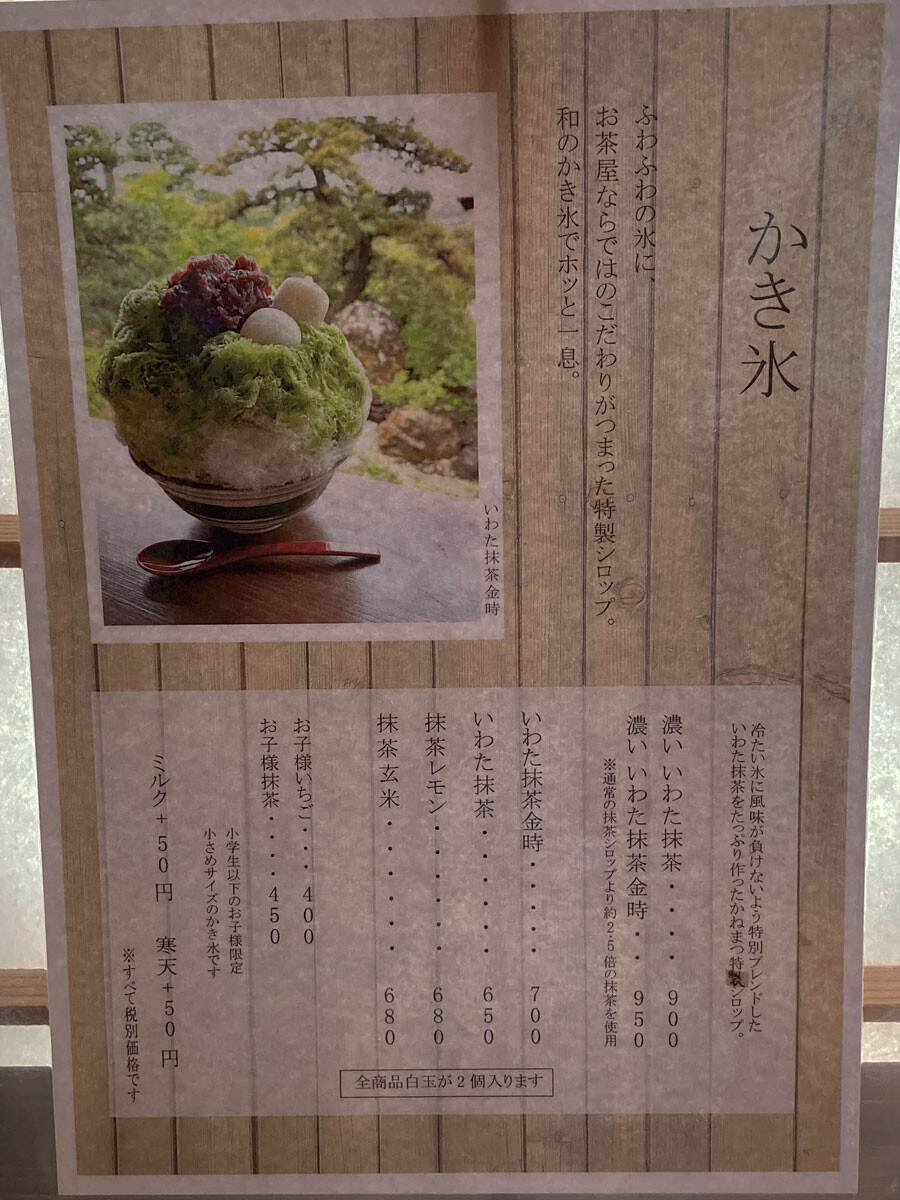 かき氷
ふわふわの氷に、
お茶屋ならではのこだわりがつまった特製シロップ。
和のかき氷でホッと一息。
いわた抹茶金時
冷たい氷に風味が負けないよう特別ブレンドした
いわた抹茶をたっぷり作ったかねまつ特製シロップ。
濃い いわた抹茶・・・・900
濃い いわた抹茶金時・・950
※通常の抹茶シロップより約2.5倍の抹茶を使用
いわた抹茶金時・・・・・700
いわた抹茶・・・・・・650
抹茶レモン・・・・・・680
抹茶玄米・・・・・・・680
全商品白玉が2個入ります
お子様いちご・・・400
お子様抹茶・・・・450
小学生以下のお子様限定
小さめサイズのかき氷です
ミルク+50円 寒天+50円
※すべて税別価格です